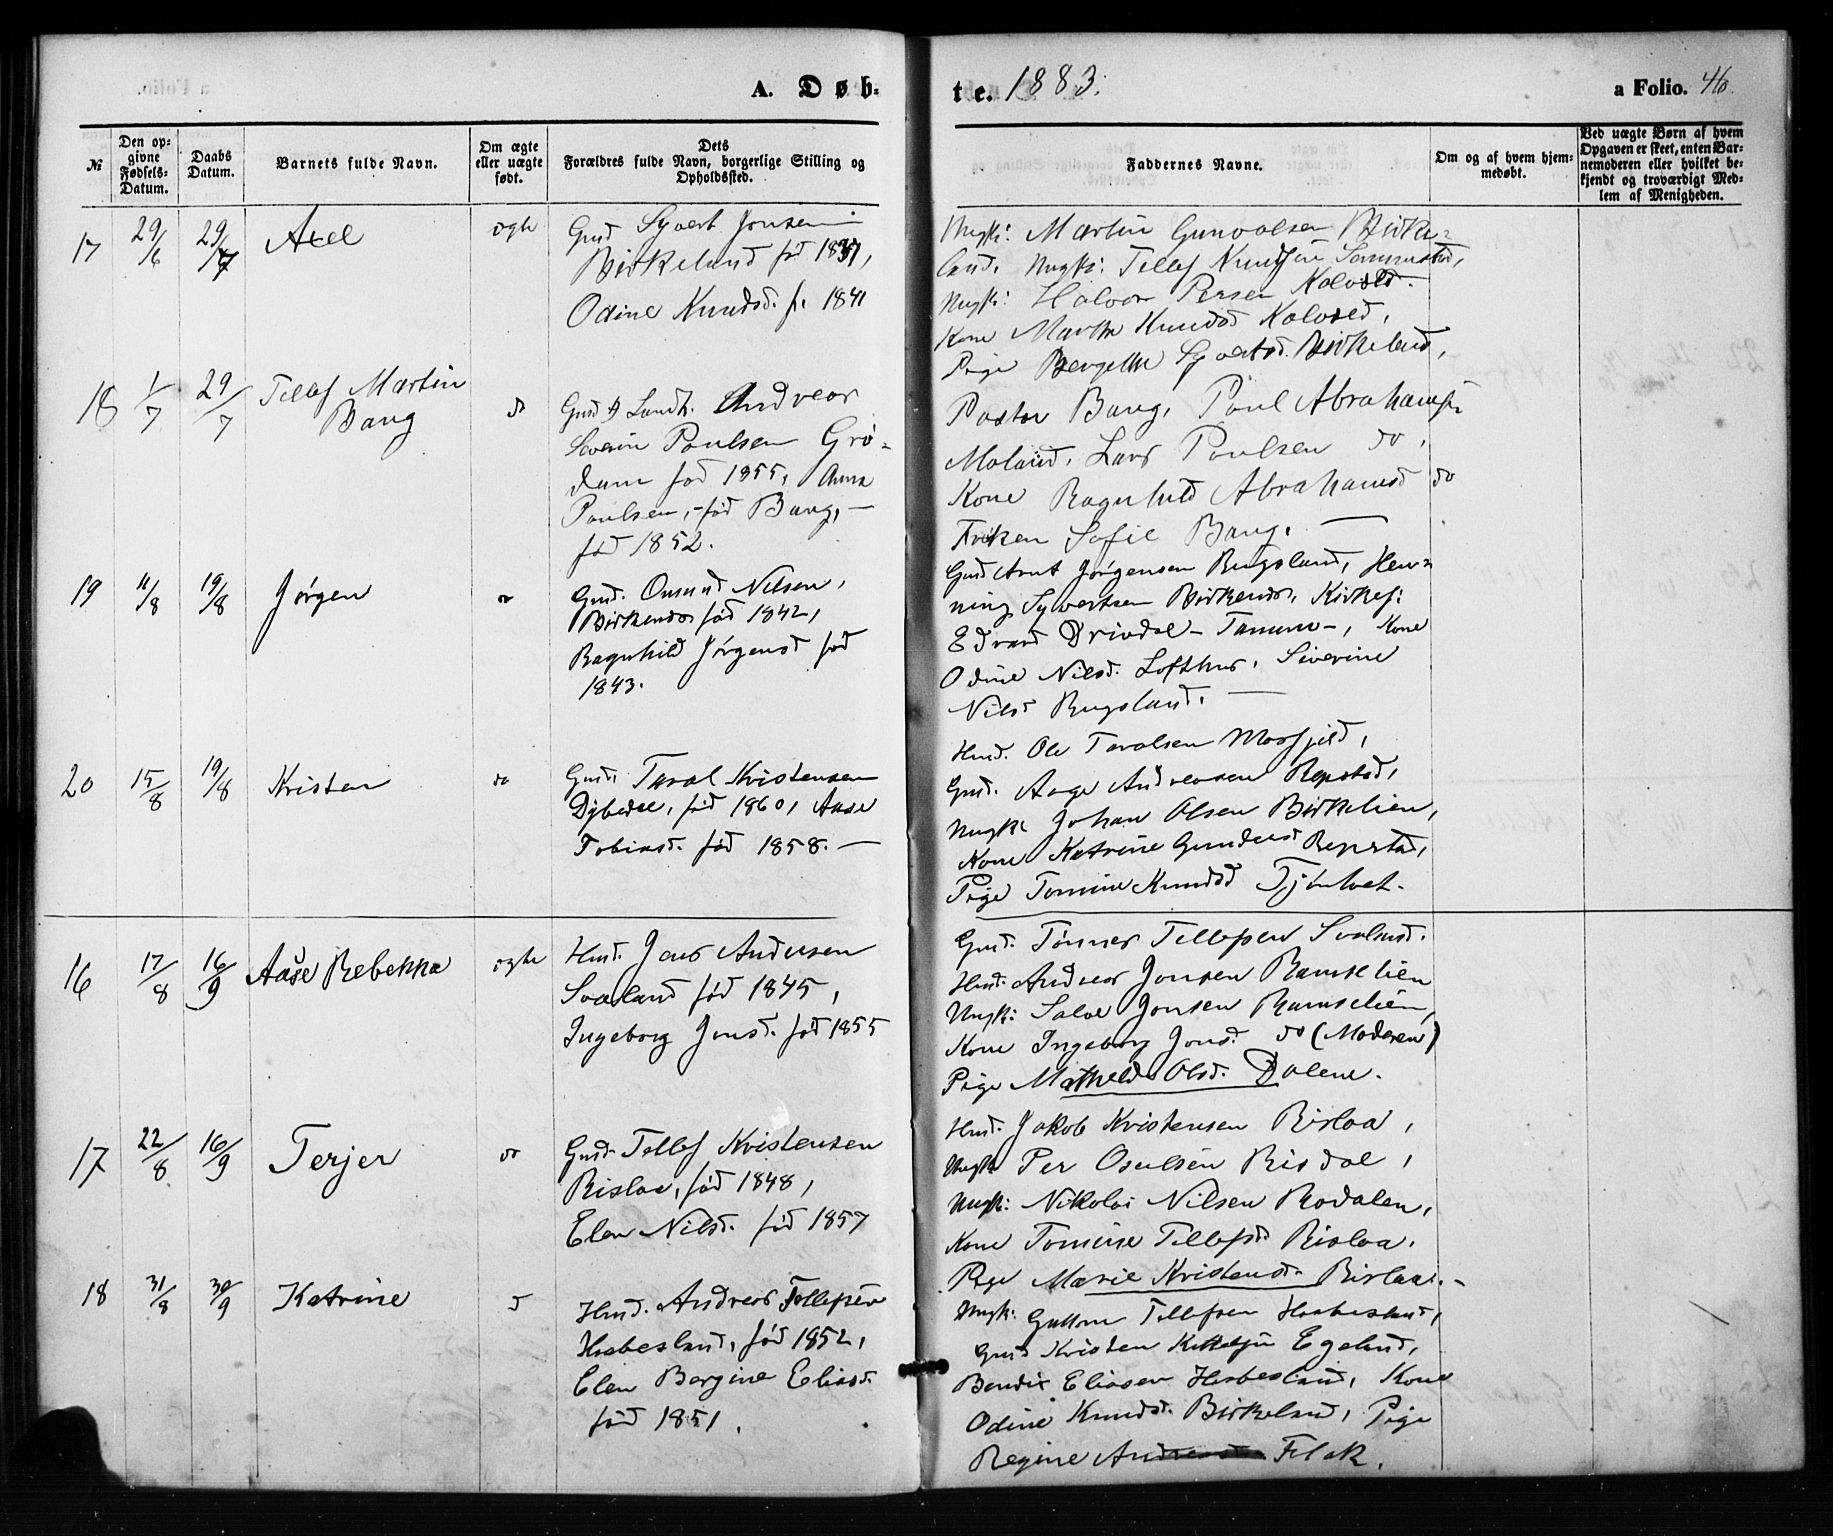 A. Døb-
№
Den op-
givne
Fødsels-
Datum.
Daabs
Datum.
Barnets fulde Navn.
Om ægte
eller uægte
født.
Dets
Forældres fulde Navn, borgerlige Stilling og
Opholdssted.
17 29/6 29/7 Axel ægte Gmd Syvert Jonsen
Birkeland fød 1837,
Odine Knudsd. f. 1841
18 1/7 29/7 Tellef Martin
Bang do Gmd Landh. Andreas
Severin Poulsen Grø-
dum fød 1855, Anna
Poulsen, fød Bang, —
fød 1852.
19 11/8 19/8 Jørgen do Gmd. Omund Nilsen,
Birkenes fød 1842,
Ragnhild Jørgensd fød
1843.
20 15/8 19/8 Kristen do Gmd. Taral Kristensen
Dybedal, fød 1860, Aase
Tobiasd. fød 1858. —
16 17/8 16/9 Aase Rebekka ægte Hmd. Jens Andersen
Svaland fød 1845,
Ingeborg Jensd. fød 1855
17 22/8 16/9 Terjer do Gmd. Tellef Kristensen
Risløa, fød 1848,
Elen Nilsd. fød 1857
18 31/8 30/9 Katrine d Hmd. Andreas Tellefsen
Habesland, fød 1852,
Elen Bergine Eliasd.
fød 1851.
te. 1883. a Folio. 46.
Faddernes Navne.
Om og af hvem hjem-
medøbt.
Ved uægte Børn af hvem
Opgaven er skeet, enten Bar-
nemoderen eller hvilket be-
kjendt og troværdigt Med-
lem af Menigheden.
Ungk: Martin Gunvalsen Birke-
land. Ungk: Tellef Knudsen
Ungk: Halvor Persen
Kone Marthe Knudsd
Pige Syvertsd. Birkeland,
Pastor Bang, Poul Abrahamsen
Moland, Lars Poulsen do,
Kone Ragnhild Abrahamsd do
Frøken Sofie Bang. —
Gmd Arnt Jørgensen Rugsland, Hen-
ning Syvertsen Birkenes, Kirkes:
Edvard Drivdal - Tamme -, Kone
Odine Nilsd. Lofthus, Siverine
Nilsd Rugsland. —
Hmd. Ole Taralsen
Gmd. Aage Andreasen Repstad,
Ungk: Johan Olsen Birkelien,
Kone Katrine Gundersd Repstad,
Pige Tomine Knudsd
Gmd. Tønnes Tellefsen Svaland.
Hmd. Andreas Jonsen Ramselien
Ungk: Salve Jonsen Ramselien,
Kone Ingeborg Jonsd. do (Moderen)
Pige Mathilde Olsd. Dalene.
Hmd. Jakob Kristensen Risløa,
Ungk Per Osulsen Risdal,
Ungk: Nikolai Nilsen Rodalen,
Kone Tomine Tellefsd Risløa.
Pige Marie Kristensd. Risløa. -
Ungk: Guttorm Tellefsen Habesland,
Gmd Kristen Kittelsen Egeland,
Bendix Eliasen Habesland, Kone
Odine Knudsd. Birkeland, Pige
Regine Andreasd Flak.